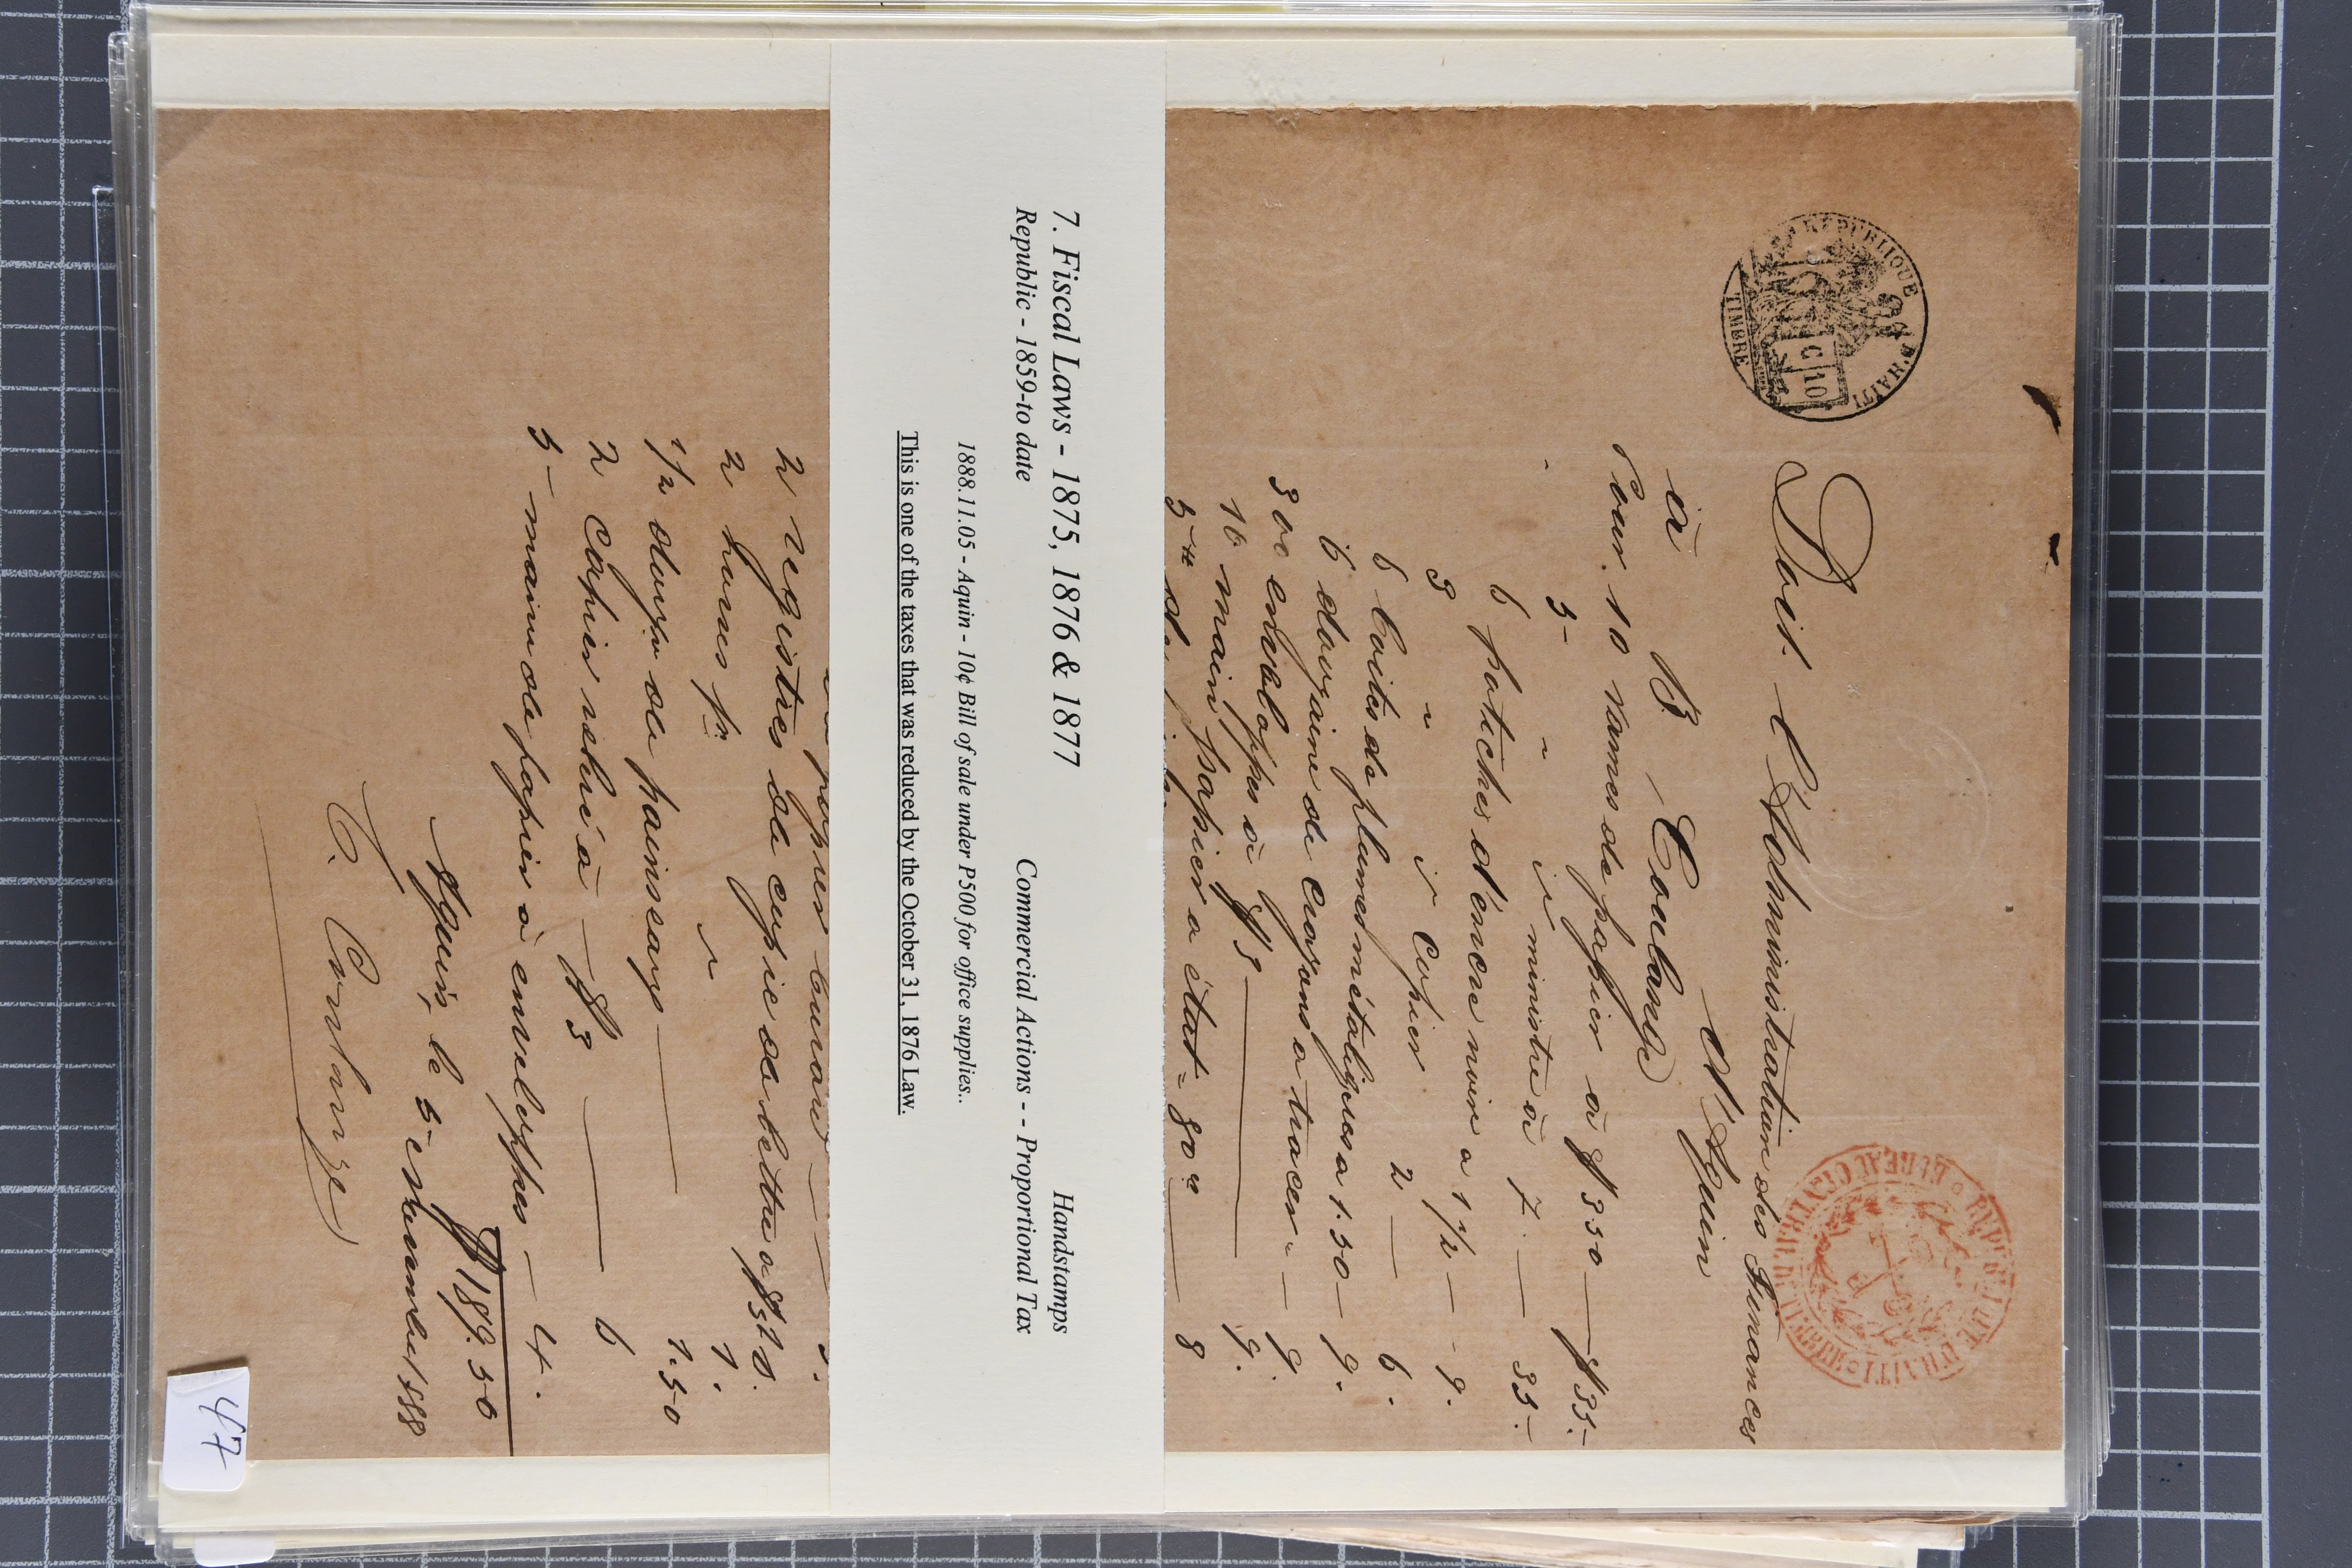 RÉPUBLIQUE D'HAITI
C 10
TIMBRE
Doit. L'Administration des Finances
d'Aquin
à B. Coulange
Pour. 10 rames de papier a $ 3 50 — $ 35.-
5- " id ministre à 7. — 35.-
6 potiches d'encre noire a 1 1/2 — 9.
3 " id Copier 2 — 6.
6 boites de plumes métaliques a 1.50 — 9.
6 douzaine de crayons a tracer — 9.
300 enveloppes à $ 3 — 9.
10 main papier a état 80 cs — 8
7. Fiscal Laws - 1875, 1876 & 1877 Handstamps
Republic - 1859-to date Commercial Actions - - Proportional Tax
1888.11.05 - Aquin - 10¢ Bill of sale under P500 for office supplies..
This is one of the taxes that was reduced by the October 31, 1876 Law.
2 registres de copie de lettre
2
1/2 douze de — 1.50
2 Copier relié à — $ 3 — 6
5- main de papier à enveloppes — 4.
$ 189.50
Aquin, le 5- novembre 1888
B. Coulange
47